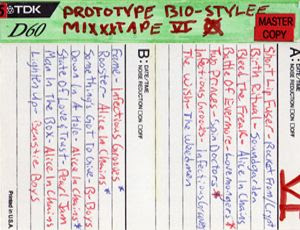 TDK
D60
PROTOTYPE BIO-STYLEE
MIXXXTAPE VI
MASTER
COPY
A: DATE/TIME
NOISE REDUCTION □ON □OFF
Short Lip Fuser - Rocket From/Crypt
Birth Ritual - Soundgarden
Bleed The Freak - Alice In Chains
Battle Of Evermore - Lovemongers
Two Princes - Spin Doctors
Infectious Grooves - Infectious Grooves
The Wish - The
VI
B: DATE/TIME
NOISE REDUCTION □ON □OFF
Fame - Infectious Grooves
Rooster - Alice In Chains
Something's Got To Give - B-Boys
Down In A Hole - Alice In Chains
State Of Love & Trust - Pearl Jam
Man In The Box - Alice In Chains
Lighten Up - Beastie Boys
Printed in USA